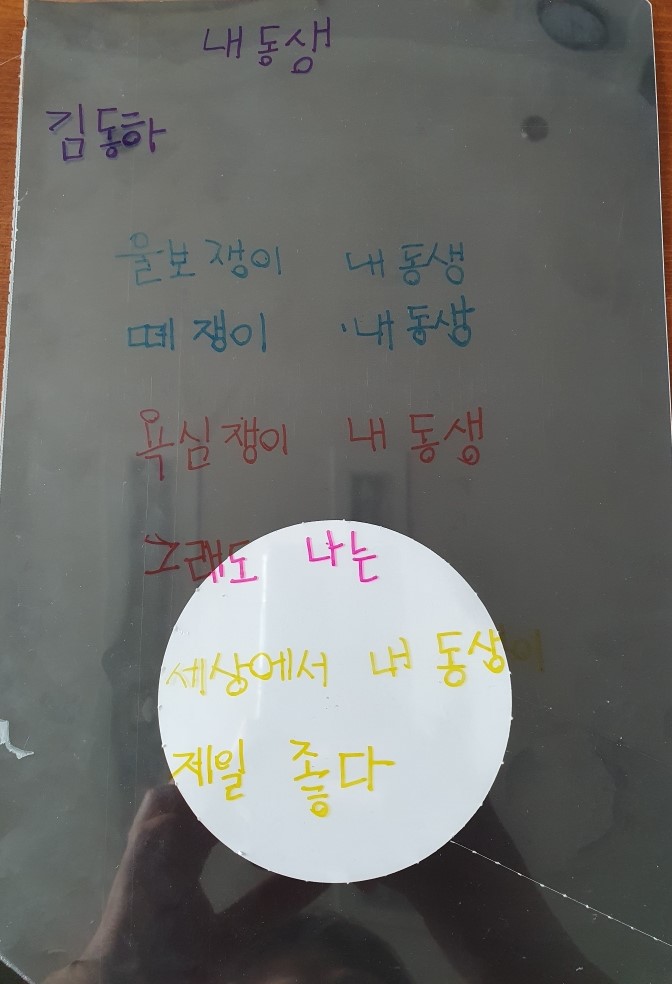 내동생
김동하
울보쟁이 내동생
떼쟁이 내동생
욕심쟁이 내동생
그래도 나는
세상에서 내 동생이
제일 좋다